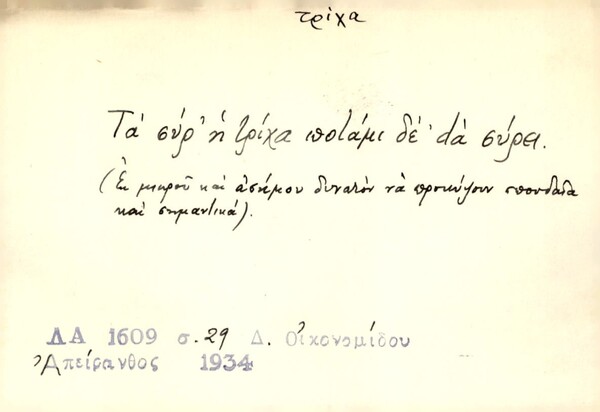 τρίχα
Τά σύρ' ἡ τρίχα ποτάμι δέ' dὰ σύρει.
(Ἐκ μικροῦ καὶ ἀσήμου δυνατὸν νὰ προκύψουν σπουδαῖα
καὶ σημαντικά).
ΛΑ 1609 σ. 29 Δ. Οἰκονομίδου
Ἀπείρανθος 1934